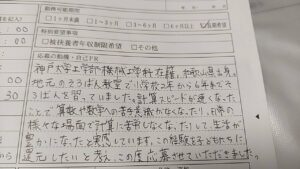 勤務可能期間
□1ヶ月未満 □1～3ヶ月 □3～6ヶ月 □6ヶ月以上 ☑長期希望
特別要望事項
□被扶養者年収制限希望 □その他
応募の動機・自己PR
神戸大学工学部機械工学科在籍、和歌山県出身。
地元のそろばん教室で小学校2年から6年までそ
ろばんを習っていました。計算スピードが速くなった
ことで算数や数学への苦手意識がなくなったり、日常の
様々な場面で計算に苦労しなくなったりして、生活が
豊かになったと実感しています。この経験を子どもたちに
還元したいと考え、この度応募させていただきました。